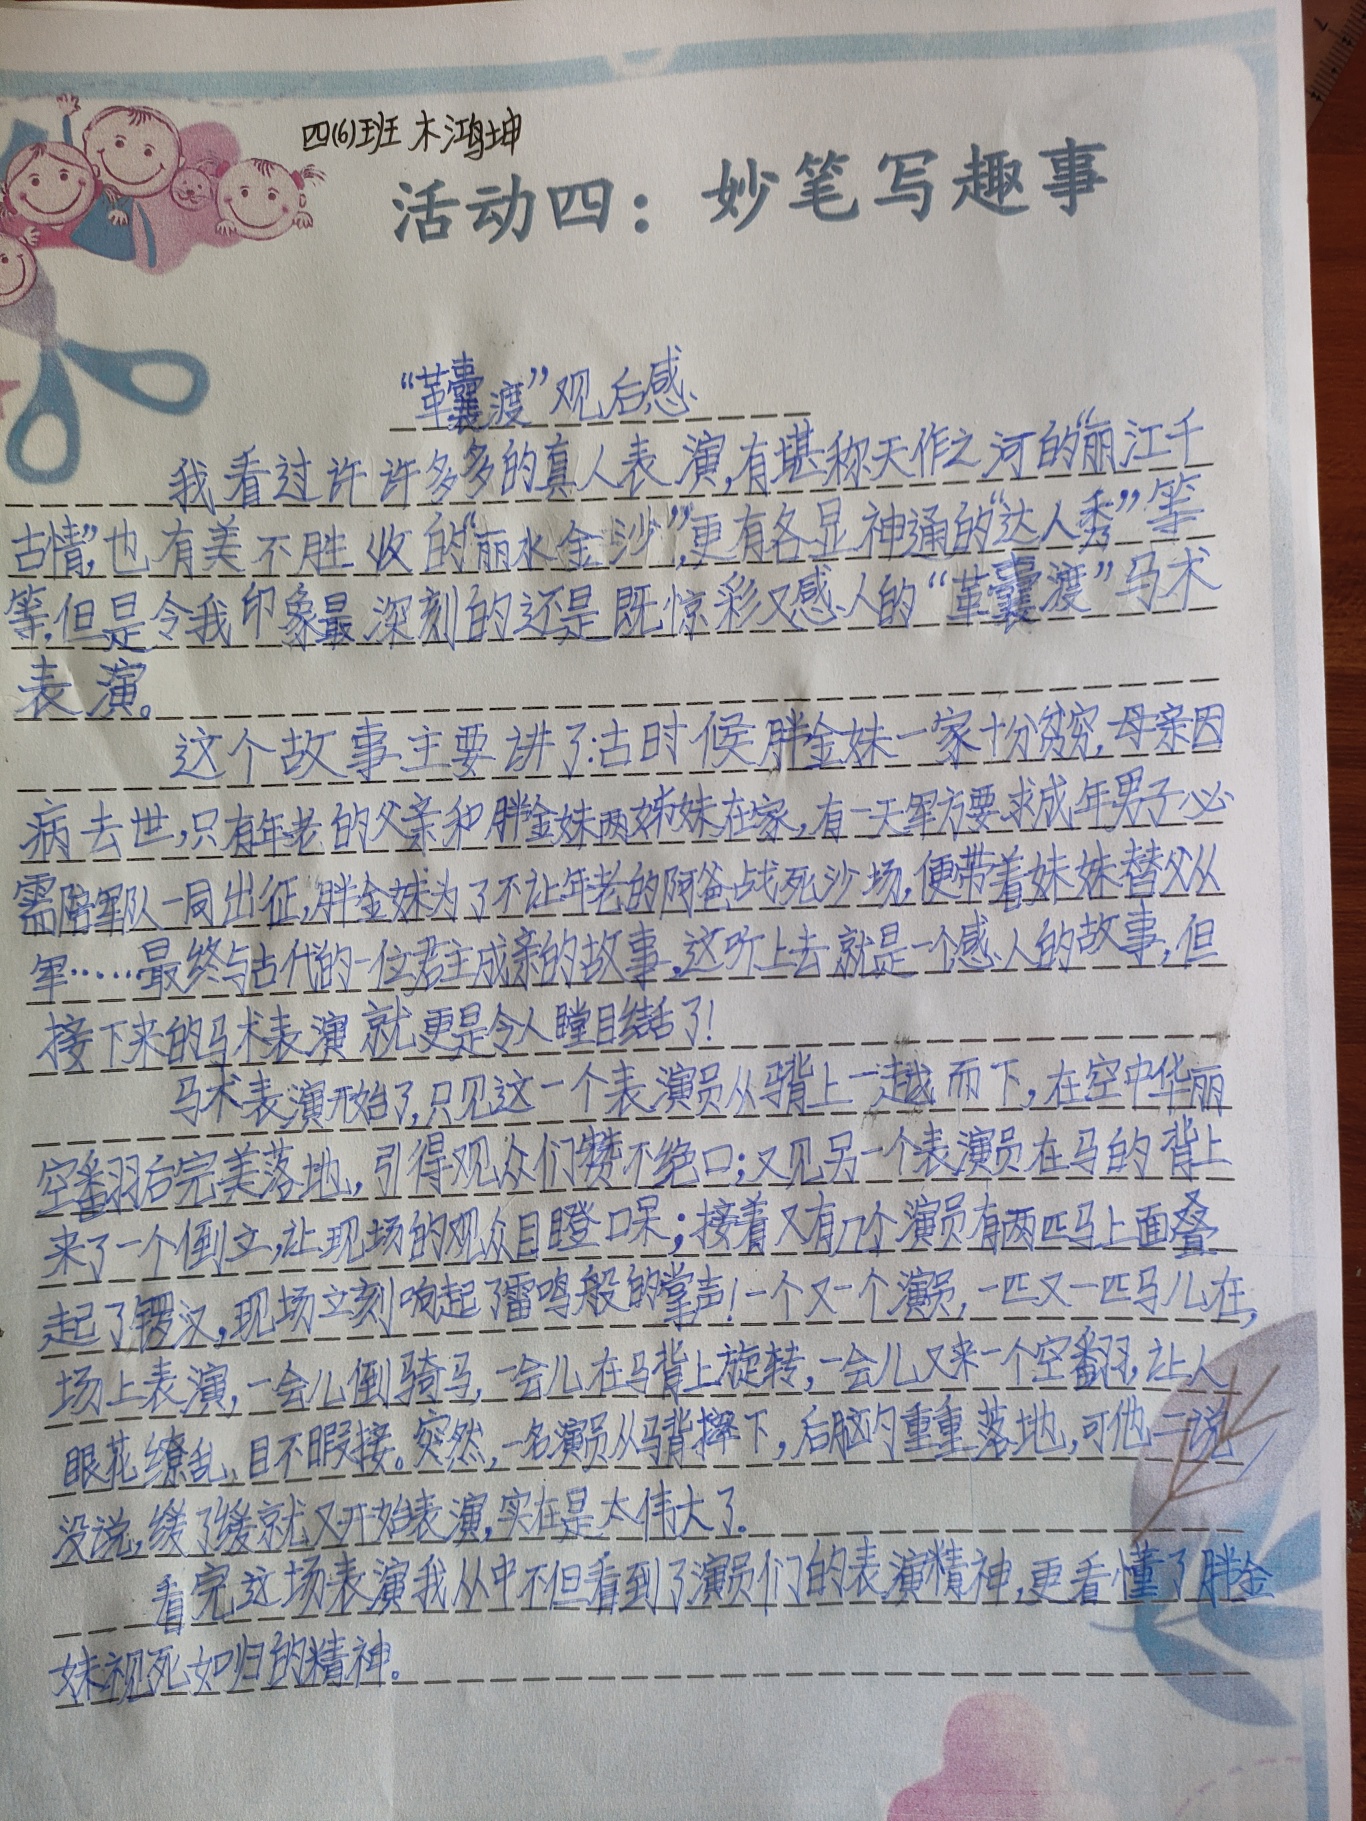 四(6)班 木鸿坤
活动四：妙笔写趣事
“革囊渡”观后感
我看过许许多多的真人表演,有堪称天作之河的“丽江千
古情”,也有美不胜收的“丽水金沙”,更有各显神通的“达人秀”等
等,但是令我印象最深刻的还是既惊彩又感人的“革囊渡”马术
表演。
这个故事主要讲了:古时候胖金妹一家十分贫穷,母亲因
病去世,只有年老的父亲和胖金妹两姊妹在家,有一天军方要求成年男子必
需陪军队一同出征,胖金妹为了不让年老的阿爸战死沙场,便带着妹妹替父从
军……最终与古代的一位君主成亲的故事,这听上去就是一个感人的故事,但
接下来的马术表演就更是令人瞠目结舌了!
马术表演开始了,只见这一个表演员从马背上一越而下,在空中华丽
空翻后完美落地,引得观众们赞不绝口;又见另一个表演员在马的背上
来了一个倒立,让现场的观众目瞪口呆;接着又有几个演员在两匹马上面叠
起了锣汉,现场立刻响起了雷鸣般的掌声!一个又一个演员,一匹又一匹马儿在,
场上表演,一会儿倒骑马,一会儿在马背上旋转,一会儿又来一个空翻,让人
眼花缭乱、目不暇接。突然,一名演员从马背摔下,后脑勺重重落地,可他二说
没说,缓了缓就又开始表演,实在是太伟大了。
看完这场表演我从中不但看到了演员们的表演精神,更看懂了胖金
妹视死如归的精神。